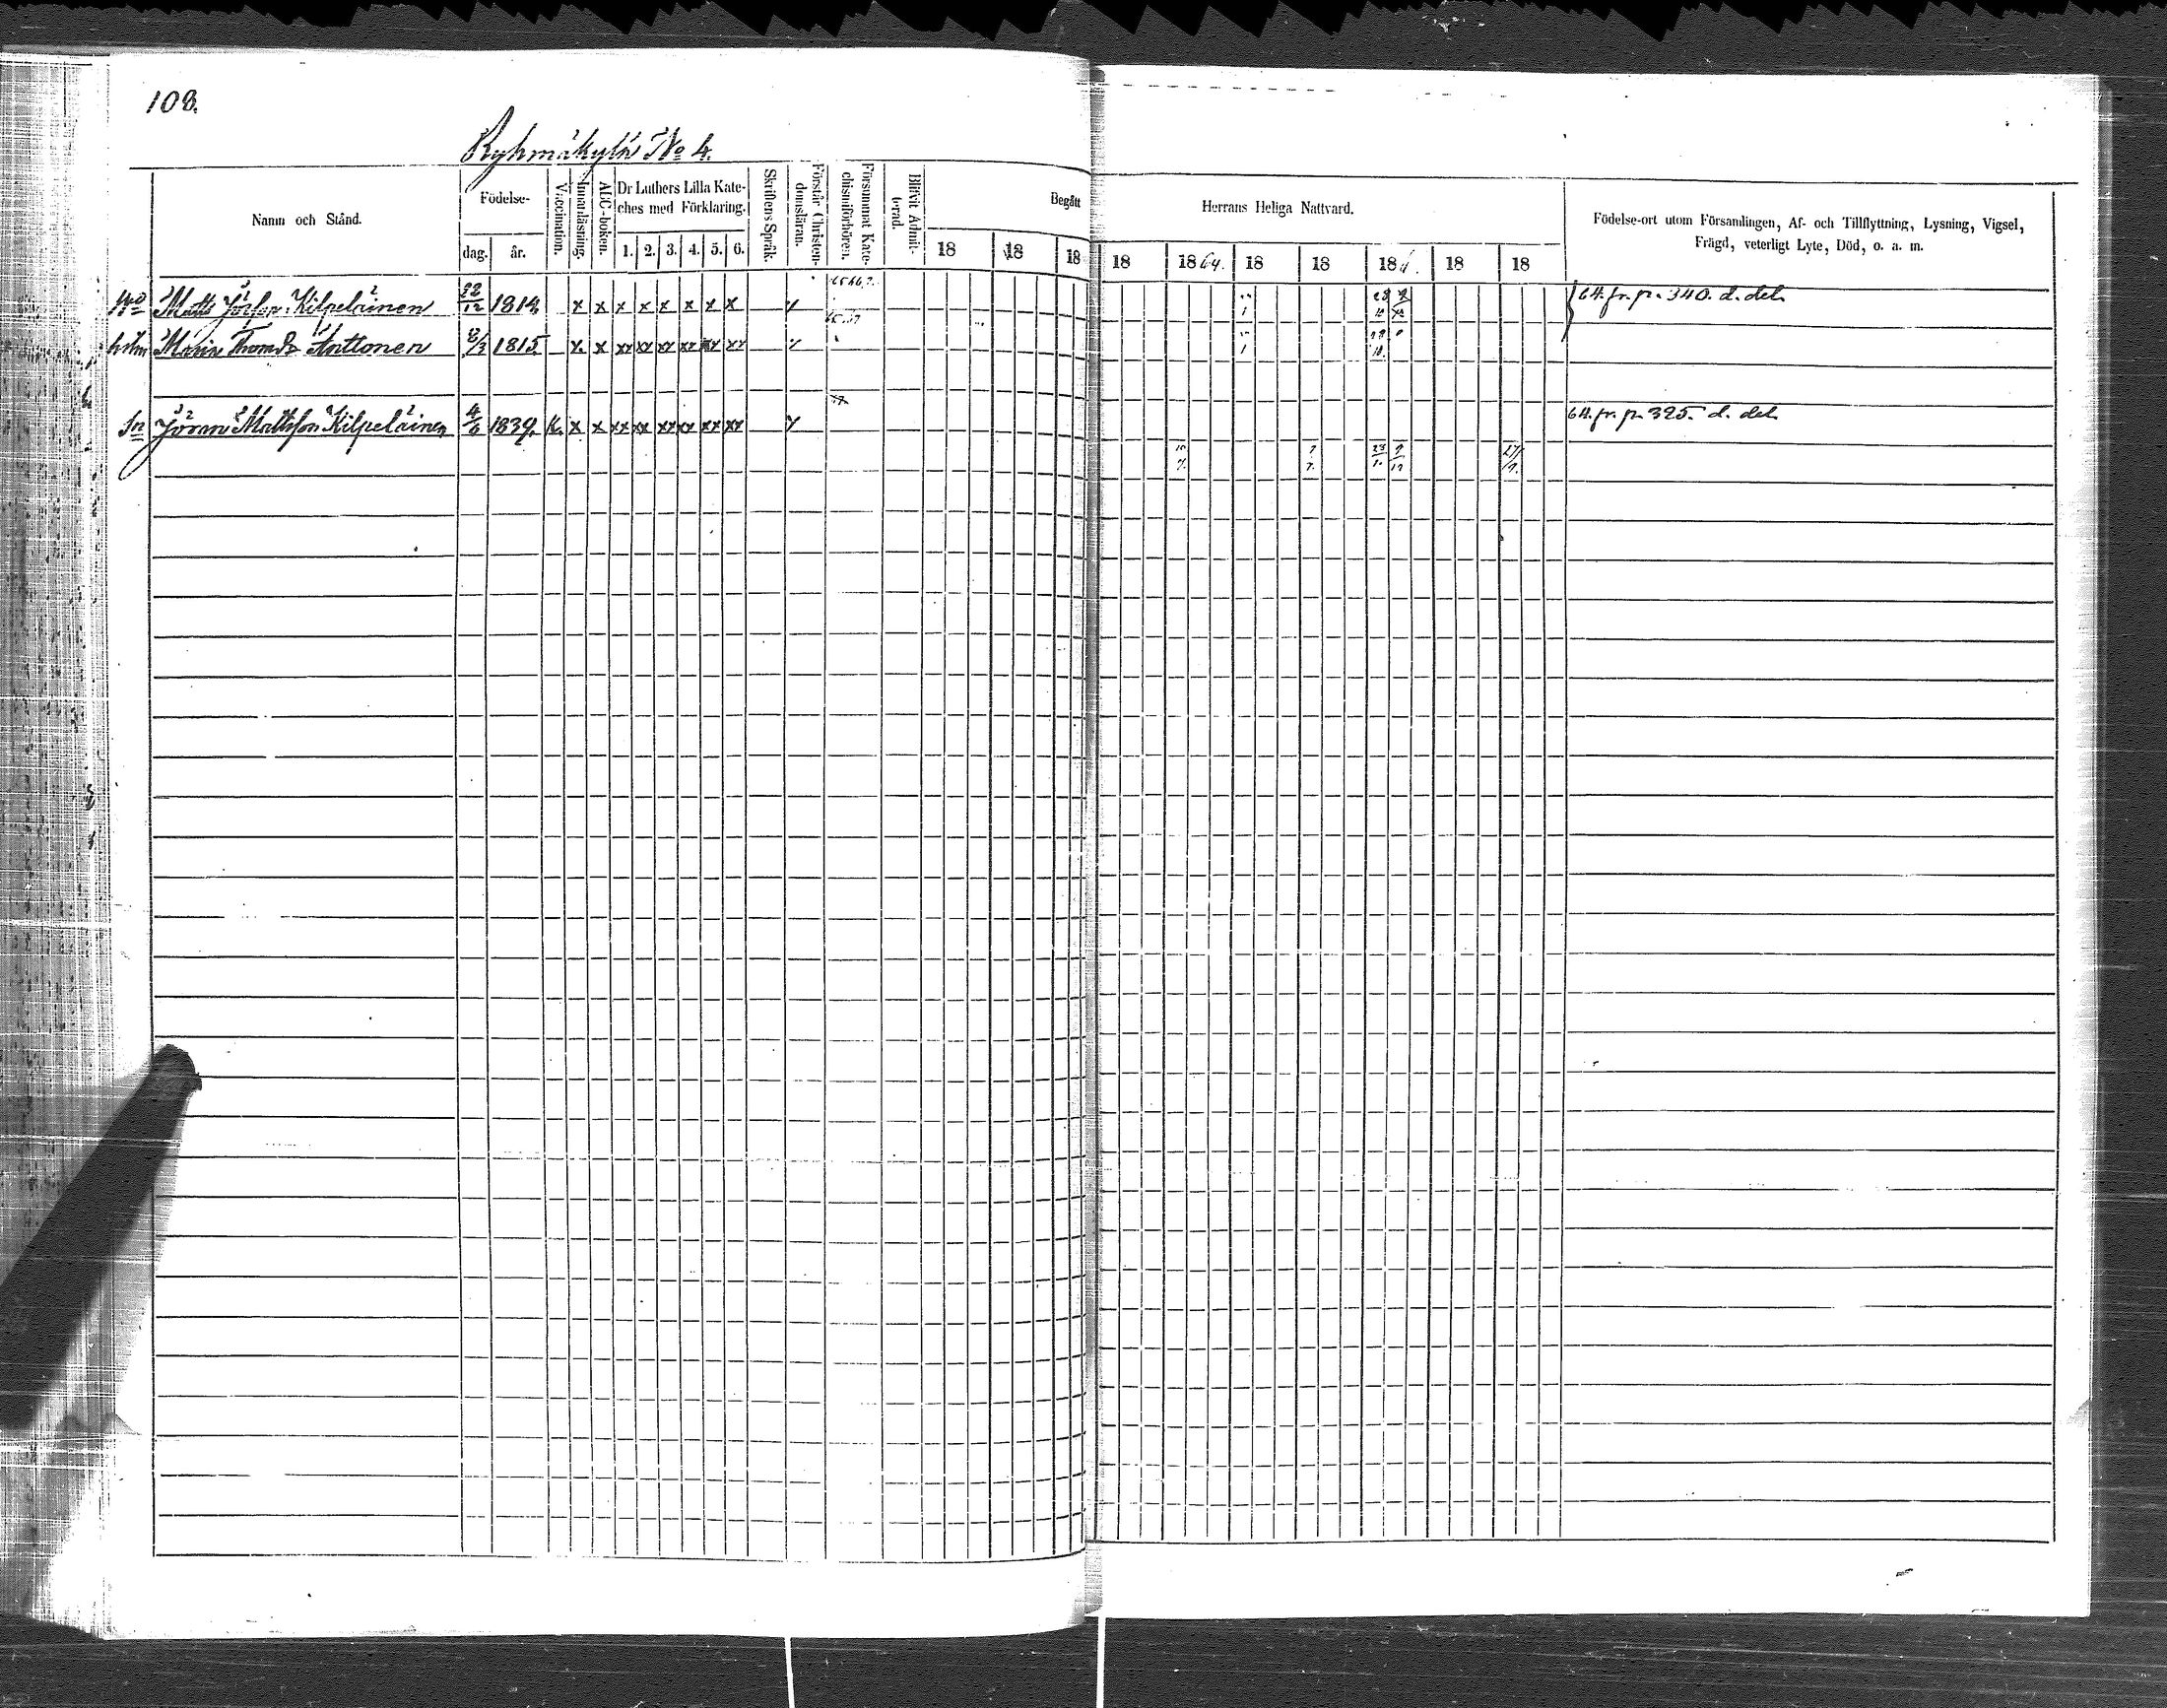 108.
Ryhmäkylä No 4.
Namn och Stånd.
Födelse-
dag. år.
Vaccination.
Innanläsning.
ABC-boken.
Dr Luthers Lilla Kate-
ches med Förklaring.
1. 2. 3. 4. 5. 6.
Skriftens Språk.
Förstår Christen-
domsläran.
Försummat Kate-
chismiförhören.
Blifvit Admit-
terad.
Begått
18 18 18
Herrans Heliga Nattvard.
18 1864. 18 18 18 18 18
Födelse-ort utom Församlingen, Af- och Tillflyttning, Lysning, Vigsel,
Frägd, veterligt Lyte, Död, o. a. m.
Matts Kilpeläinen 12 1814 x x x x x x x x 64. fr. p. 340. d. del.
Maria Thomsdr Anttonen 1815 x x xx xx xx xx xx xx
Sn Jöran Mattsson Kilpeläinen 4/6 1839. x x xx xx xx xx xx xx 64. fr. p. 325. d. del